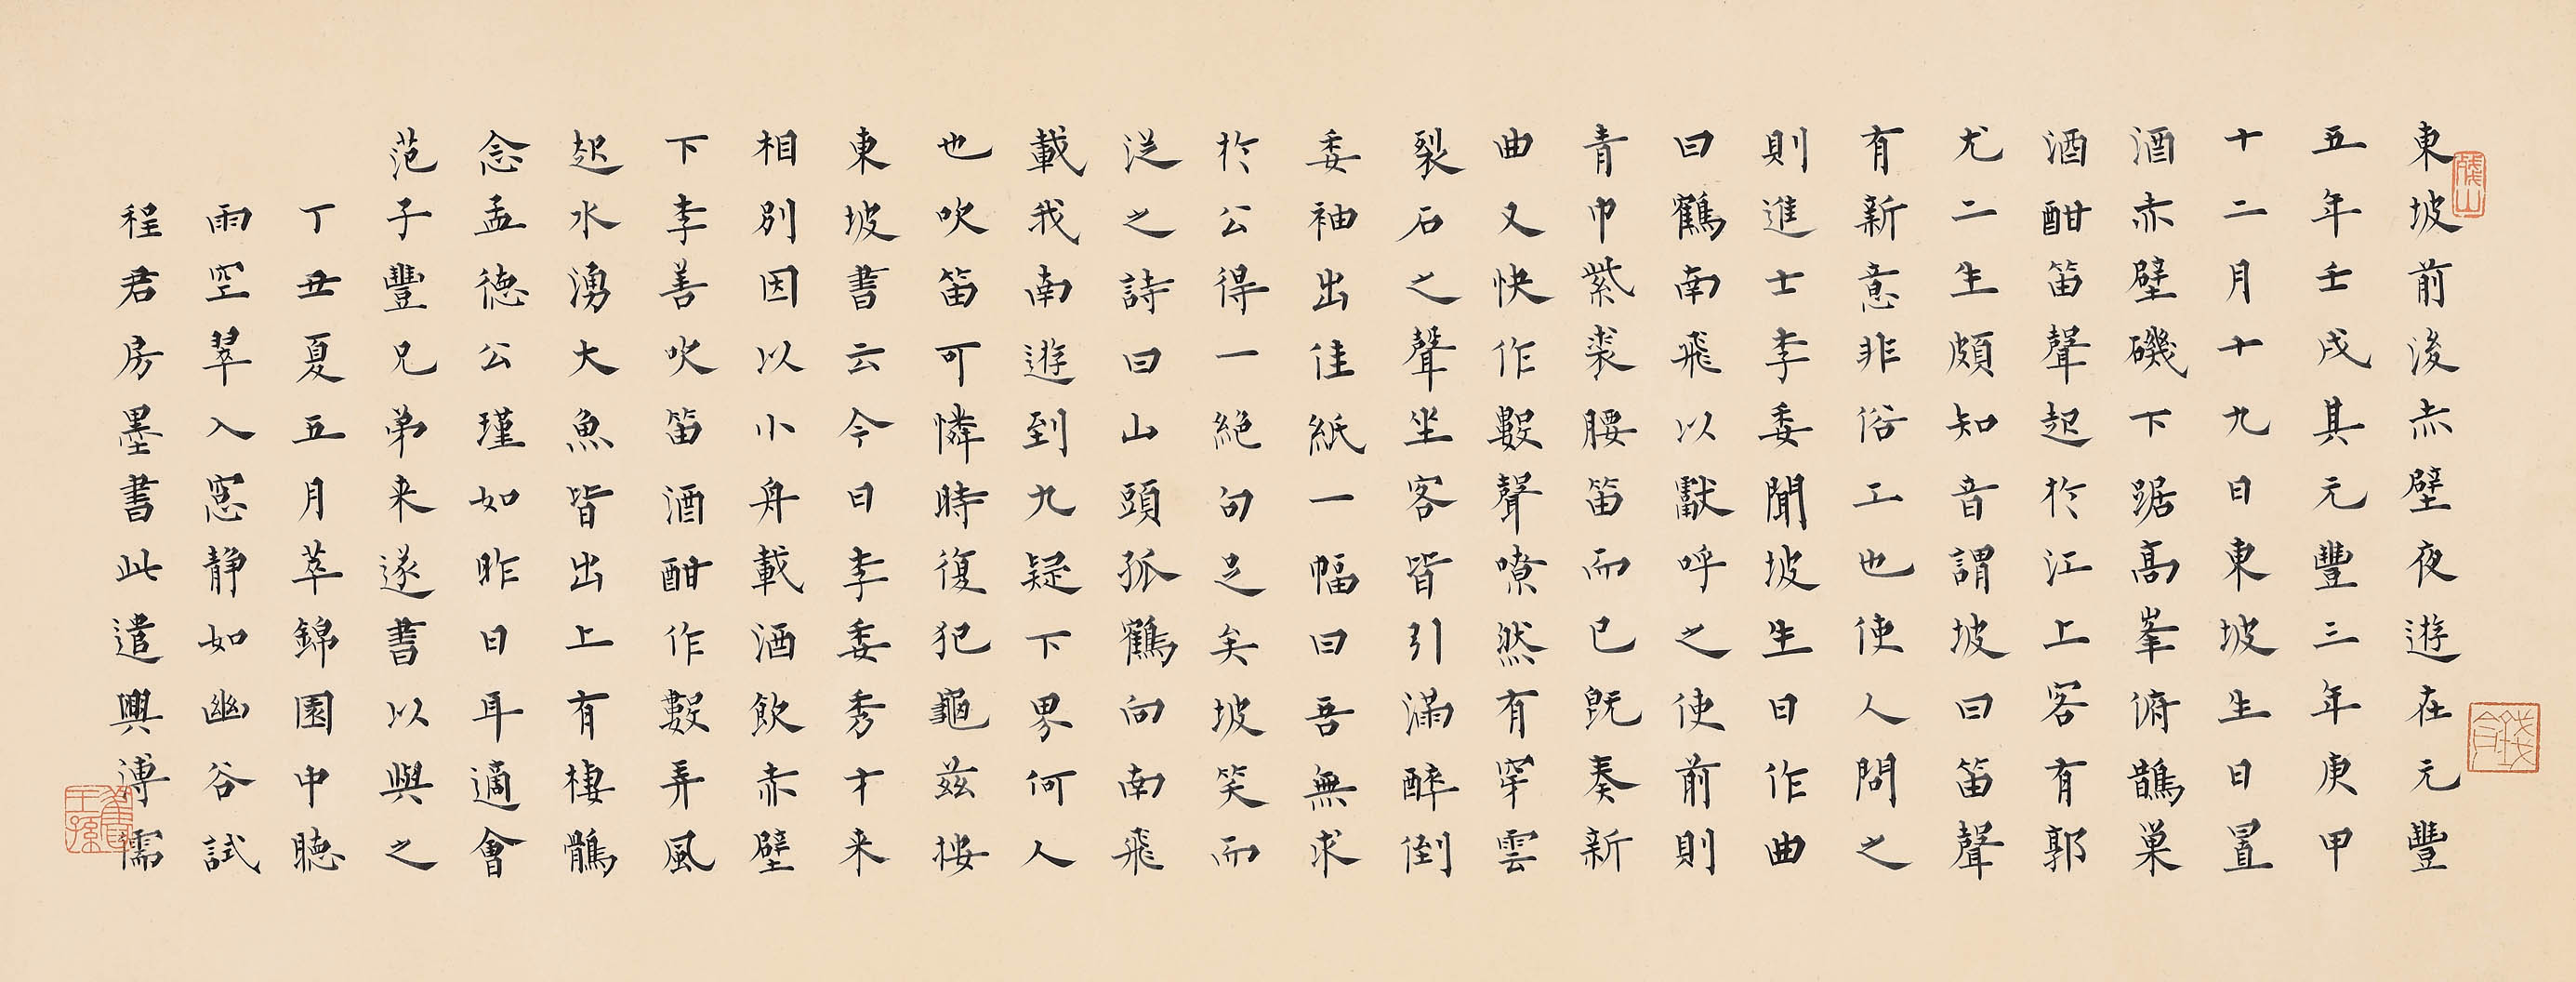 東坡前後赤壁夜遊在元豐
五年壬戌其元豐三年庚甲
十二月十九日東坡生日置
酒赤壁磯下踞高峯俯鶻巢
酒酣笛聲起於江上客有郭
尤二生頗知音謂坡曰笛聲
有新意非俗工也使人問之
則進士李委聞坡生日作曲
曰鶴南飛以獻呼之使前則
青巾紫裘腰笛而已既奏新
曲又快作數聲嘹然有穿雲
裂石之聲坐客皆引滿醉倒
委袖出佳紙一幅曰吾無求
於公得一絕句足矣坡笑而
從之詩曰山頭孤鶴向南飛
載我南遊到九疑下界何人
也吹笛可憐時復犯龜茲按
東坡書云今日李委秀才来
相別因以小舟載酒飲赤壁
下李善吹笛酒酣作數弄風
起水湧大魚皆出上有棲鶻
念孟德公瑾如昨日耳適會
范子豐兄弟来遂書以與之
丁丑夏五月萃錦園中聽
雨空翠入窓静如幽谷試
程君房墨書此遣興溥儒
舊王孫